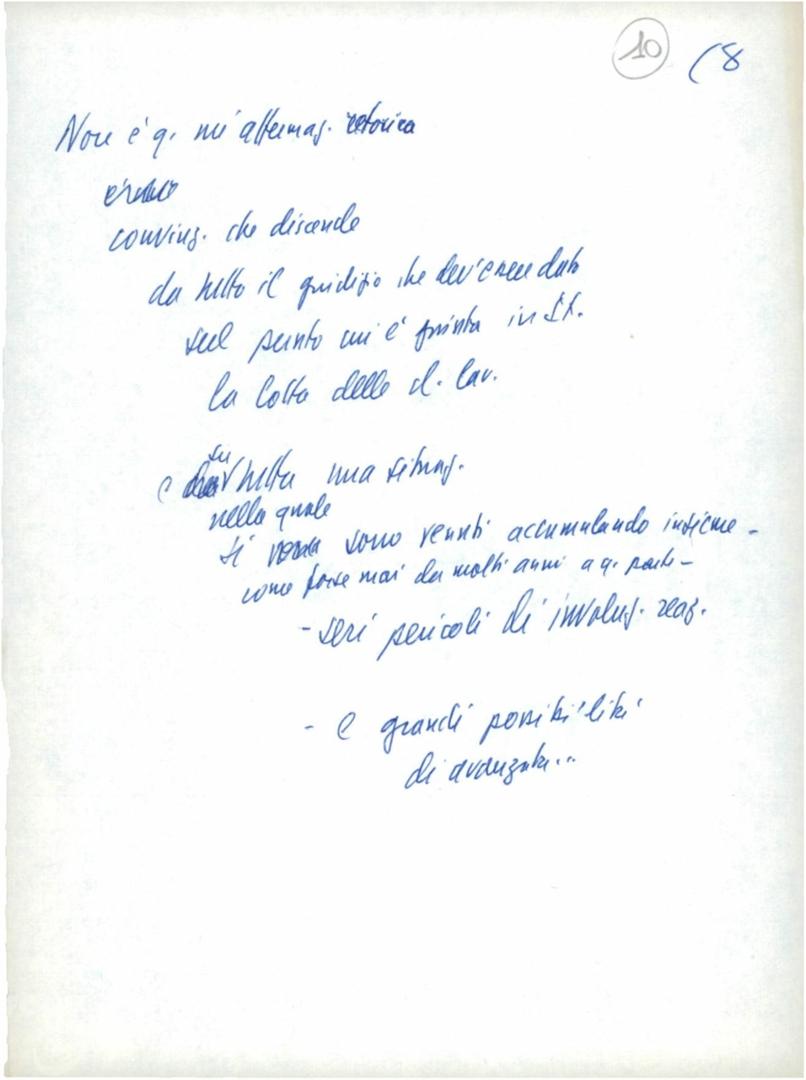 10 (8
Non è q. un'affermaz. retorica
convinz. che discende
da tutto il giudizio che dev'essere dato
sul punto cui è giunta in It.
la lotta delle cl. lav.
su
e tutta una situaz.
nella quale
si sono venuti accumulando insieme -
come forse mai da molti anni a q. parte -
- seri pericoli di involuz. reaz.
- e grandi possibilità
di avanzata...